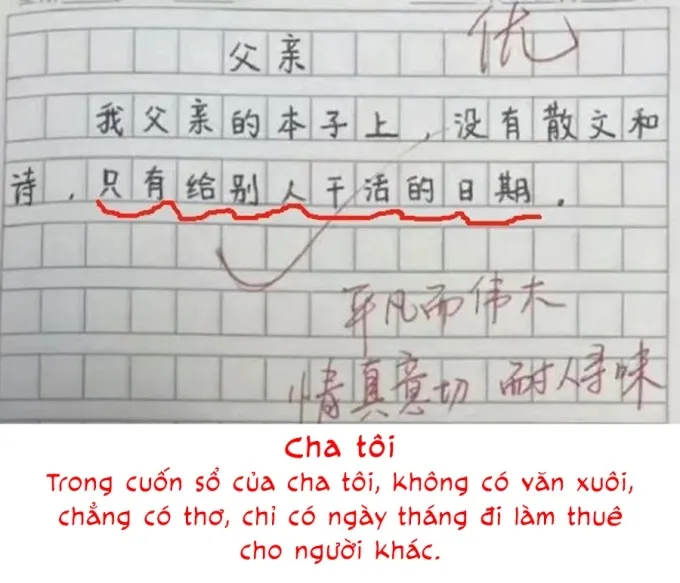 父亲
优
我父亲的本子上,没有散文和
诗,只有给别人干活的日期。
平凡而伟大
情真意切 耐人寻味
Cha tôi
Trong cuốn sổ của cha tôi, không có văn xuôi,
chẳng có thơ, chỉ có ngày tháng đi làm thuê
cho người khác.